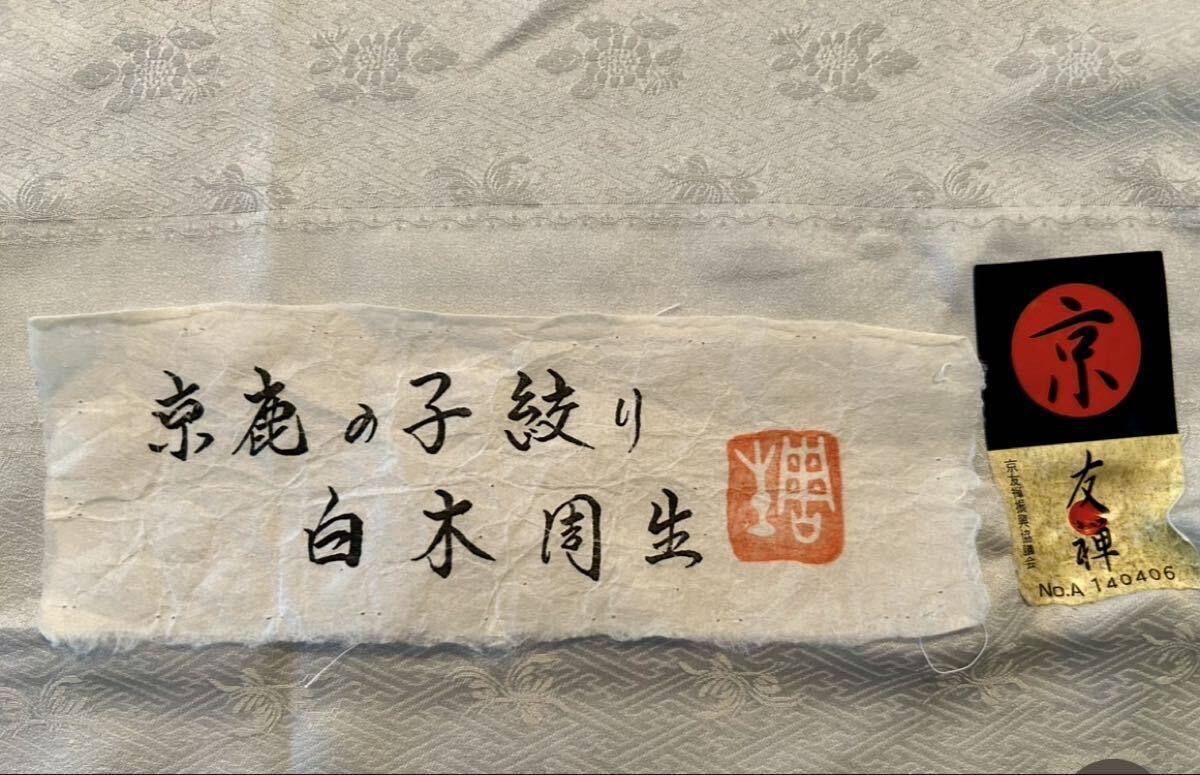 京鹿の子絞り
白木周生
京
友禅
京友禅振興協議会
No.A 140406